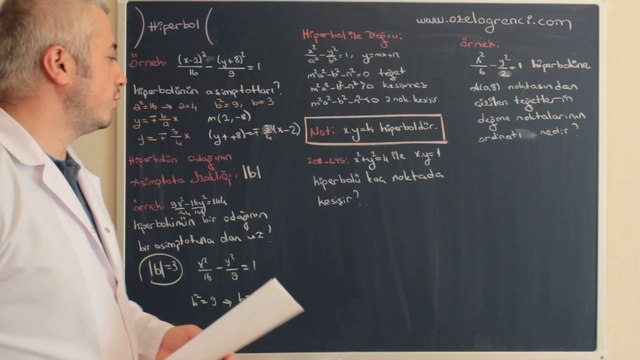 Hiperbol
Örnek: (x-2)²/16 - (y+8)²/9 = 1
hiperbolünün asimptotları?
a²=16 → a=4 b²=9, b=3
y=∓b/a x m(2,-8)
y=∓3/4 x (y+8)=∓3/4(x-2)
Hiperbolün Odağının
Asimptota Uzaklığı: |b|
örnek: 9x²/144 - 16y²/144 = 144
hiperbolünün bir odağının
bir asimptotuna olan uz?
|b|=3 x²/16 - y²/9 = 1
b²=9 →
Hiperbol ile Doğru:
x²/a² - y²/b² = 1, y=mx+n
m²a²-b²-n²=0 teğet
m²a²-b²-n²>0 kesişmez
m²a²-b²-n²<0 2 nok kesişir
Not: x.y=k hiperboldür.
2011-LYS: x²+y²=4 ile x.y=1
hiperbolü kaç noktada
kesişir?
www.ozelogrenci.com
Örnek:
x²/6 - y²/2 = 1 hiperbolüne
A(1,8) noktasından
çizilen teğetlerin
değme noktalarının
ordinatı nedir?